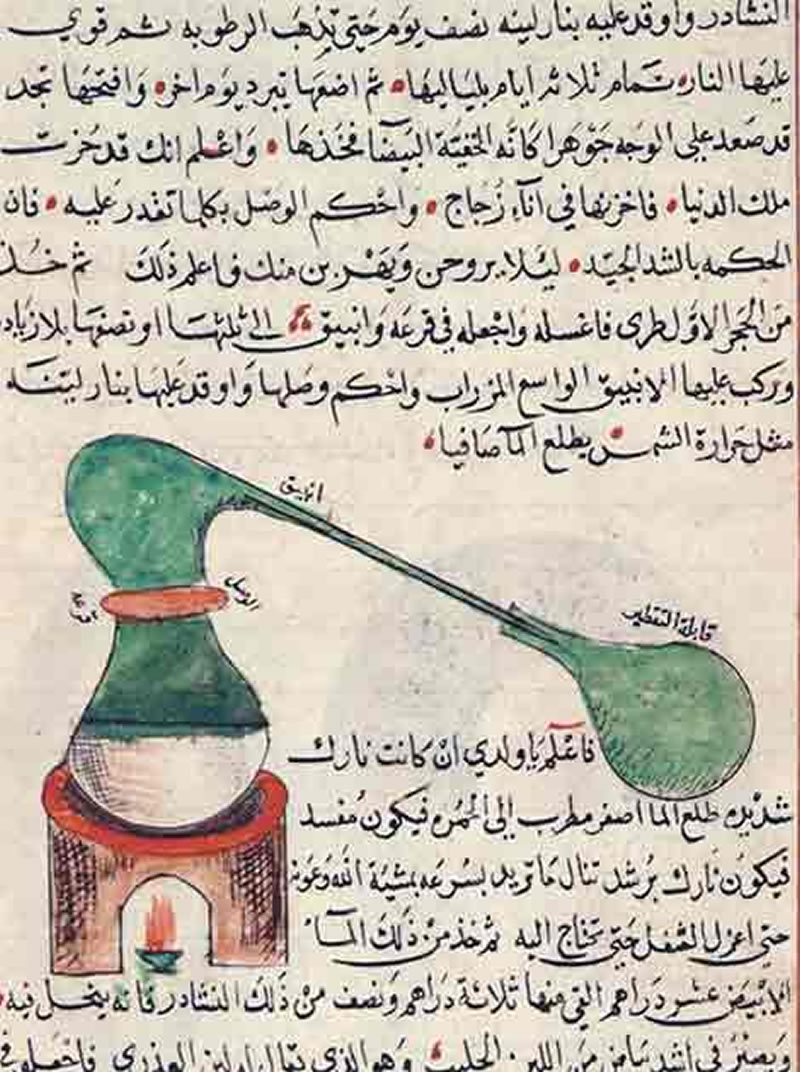 النشادر واوقد عليه بنار لينه نصف يوم حتى يذهب الرطوبه ثم قوي
عليها النار تمام ثلاثه ايام بلياليها ثم اضعها تبرد يوم اخر وافتحها تجد
قد صعد على الوجه جوهرا كانه البيضا فخذها واعلم انك قد حزت
ملك الدنيا فاخزنها في اناء زجاج واحكم الوصل بكلما تقدر عليه فان
الحكمه بالشد الجيد ليلا يروحن ويفرن منك فاعلم ذلك ثم خذ
من الحجر الاول طرى فاغسله واجعله في قرعه وانبيق الى ثلثها او نصفها بلا زياد
وركب عليها الانبيق الواسع المزراب واحكم وصلها واوقد عليها بنار لينه
مثل حرارة الشمس يطلع الما صافيا
انبيق
الوصل
قابلة التقطير
فاعلم ياولدي ان كانت نارك
شديده طلع الما اصفر الى الحمره فيكون مفسد
فيكون نارك برشد تنال ما تريد بسرعه بمشية الله وعونه
حتى اعزل الثفل حتى تحتاج اليه ثم خذ من ذلك الما
الابيض عشر دراهم القي منها ثلاثة دراهم ونصف من ذلك النشادر فانه ينحل فيه
ويصير في اشد بياض من اللبن الحليب وهو الذي لبن العذرى فاجعله في